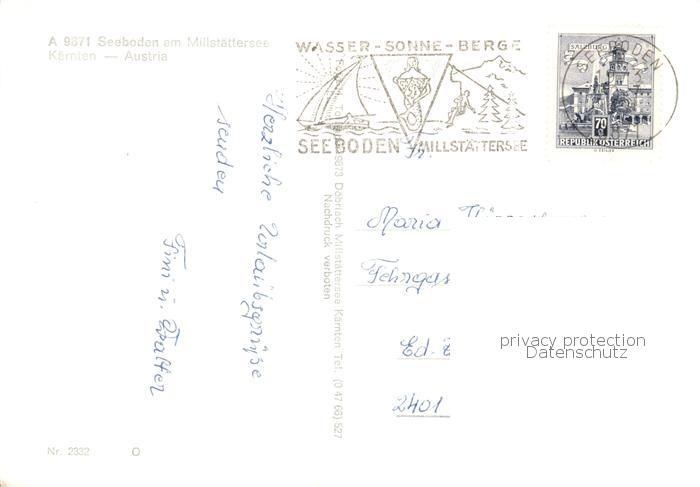 A 9871 Seeboden am Millstättersee
Kärnten — Austria
WASSER - SONNE - BERGE
SEEBODEN MILLSTÄTTERSEE
SALZBURG
SEEBODEN
70
REPUBLIK ÖSTERREICH
Herzliche Urlaubsgrüße
senden
Fini u. Walter
9873 Döbriach Millstättersee Kärnten Tel. (0 47 66) 527
Nachdruck verboten
Fr.
Maria
Fehrgas
Ed.
2401
privacy protection
Datenschutz
Nr. 2332 O